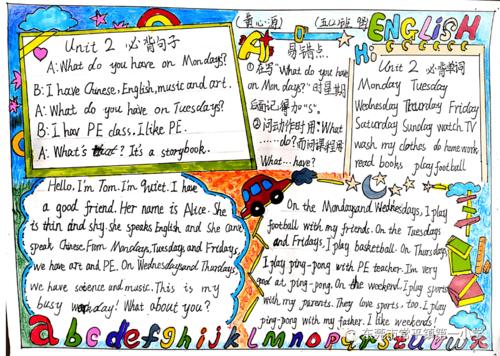 (黄心海)
ENGLISH
Unit 2 必背句子
A: What do you have on Mondays?
B: I have Chinese, English, music and art.
A: What do you have on Tuesdays?
B: I hav PE class. I like PE.
A: What's that? It's a storybook.
A
易错点
①在写"What do you have
on Mondays?"时星期
后面记得加"s".
②问动作时用:"What
......do?而问课程用
What...have?
Hi
Unit 2 必背单词
Monday Tuesday
Wednesday Thursday Friday
Saturday Sunday watch TV
wash my clothes do homework
read books play football
Hello. I'm Tom. I'm quiet. I have
a good friend. Her name is Alice. She
is thin and shy. she speaks English and she can
speak Chinese. From Mondays, Tuesdays and Fridays,
we have art and PE. On Wednesdays and Thursdays,
we have science and music. This is my
busy workday! What about you?
On the Mondays and Wednesdays, I play
football with my friends. On the Tuesdays
and Fridays, I play basketball. On Thursdays
I play ping-pong with PE teacher. I'm very
good at ping-pong. On the weekend. I play sports
with my parents. They love sports, too. I play
ping-pong with my father. I like weekends!
abcdefghijklmnopqrstuvwx